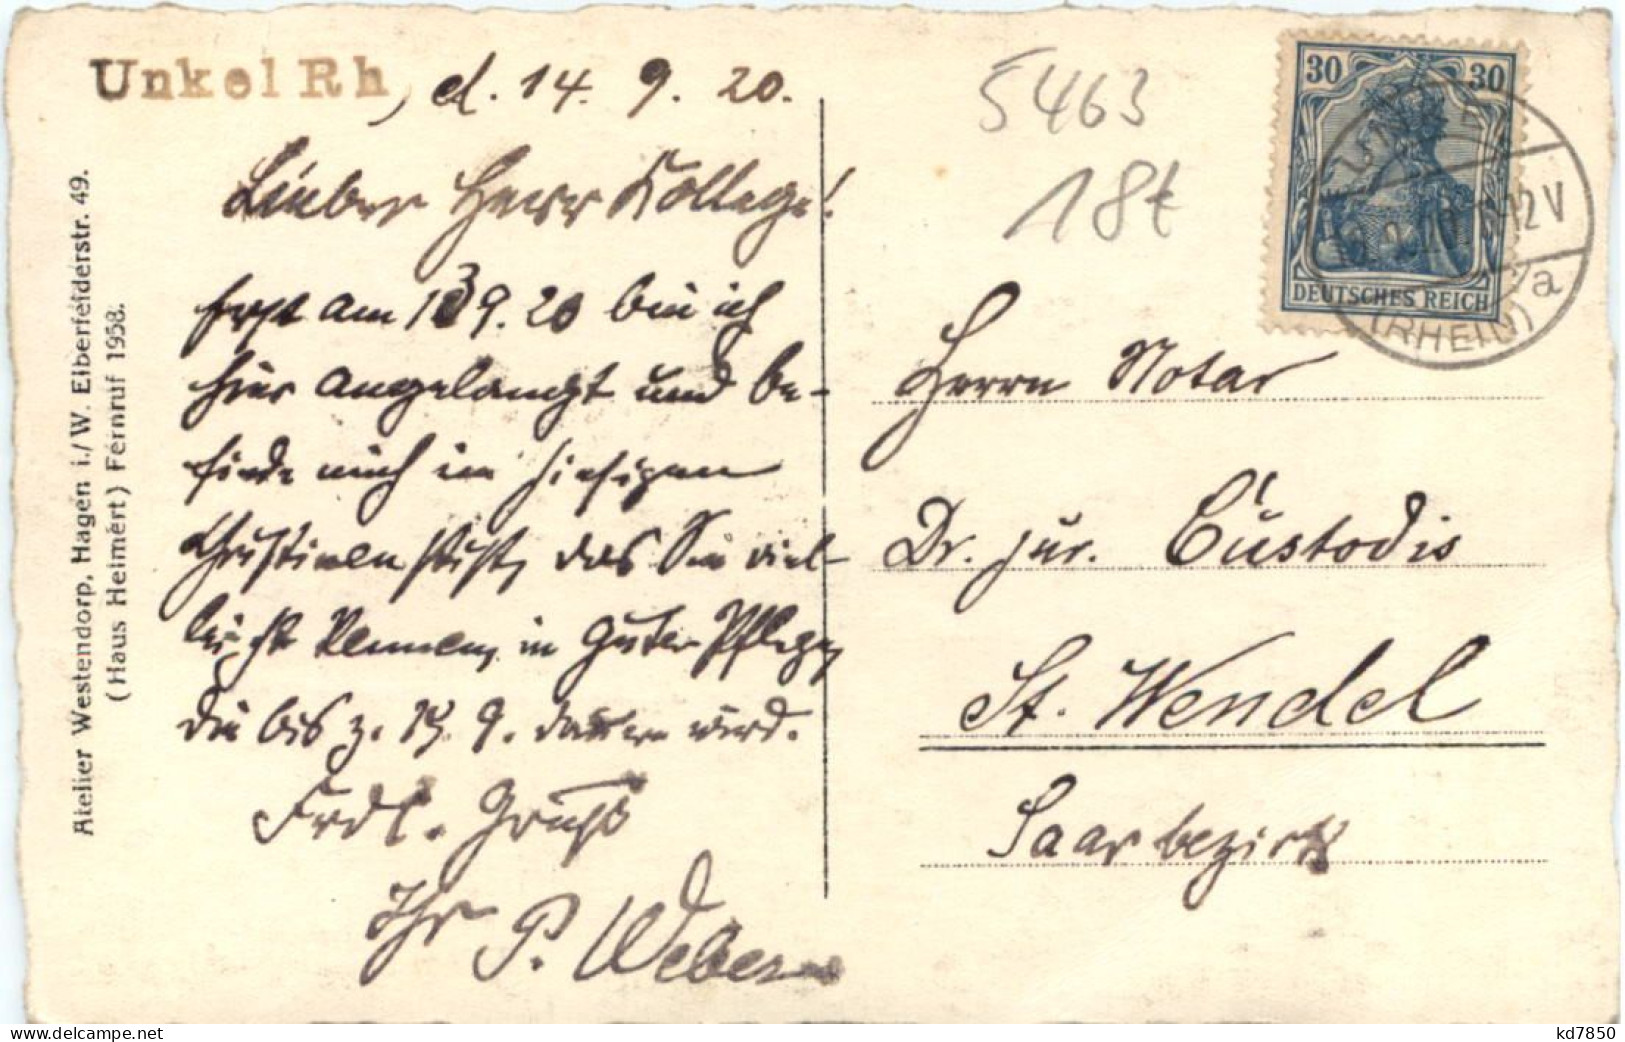 Unkel Rh, d. 14. 9. 20.
Lieber Herr Kollege!
Erst am 13 9. 20 bin ich
hier angelangt und be-
finde mich im hiesigen
Christinenstift, das Sie viel-
leicht kennen, in guter Pflege,
die bis z. 19. 9. dauern wird.
Frdl. Gruß
Ihr P. Weber
Atelier Westendorp, Hagen i./W. Elberfelderstr. 49.
(Haus Heimert) Fernruf 1958.
5463
18t
30 30
DEUTSCHES REICH
12 V
a
(RHEIN)
Herrn Notar
Dr. jur. Custodis
St. Wendel
Saarbezirk
delcampe.net
kd7850